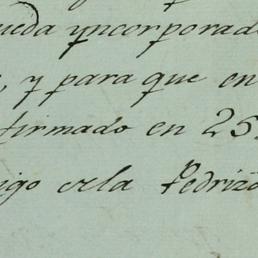 ueda yncorporado
, y para que en
firmado en 25
igo dela Pedriz